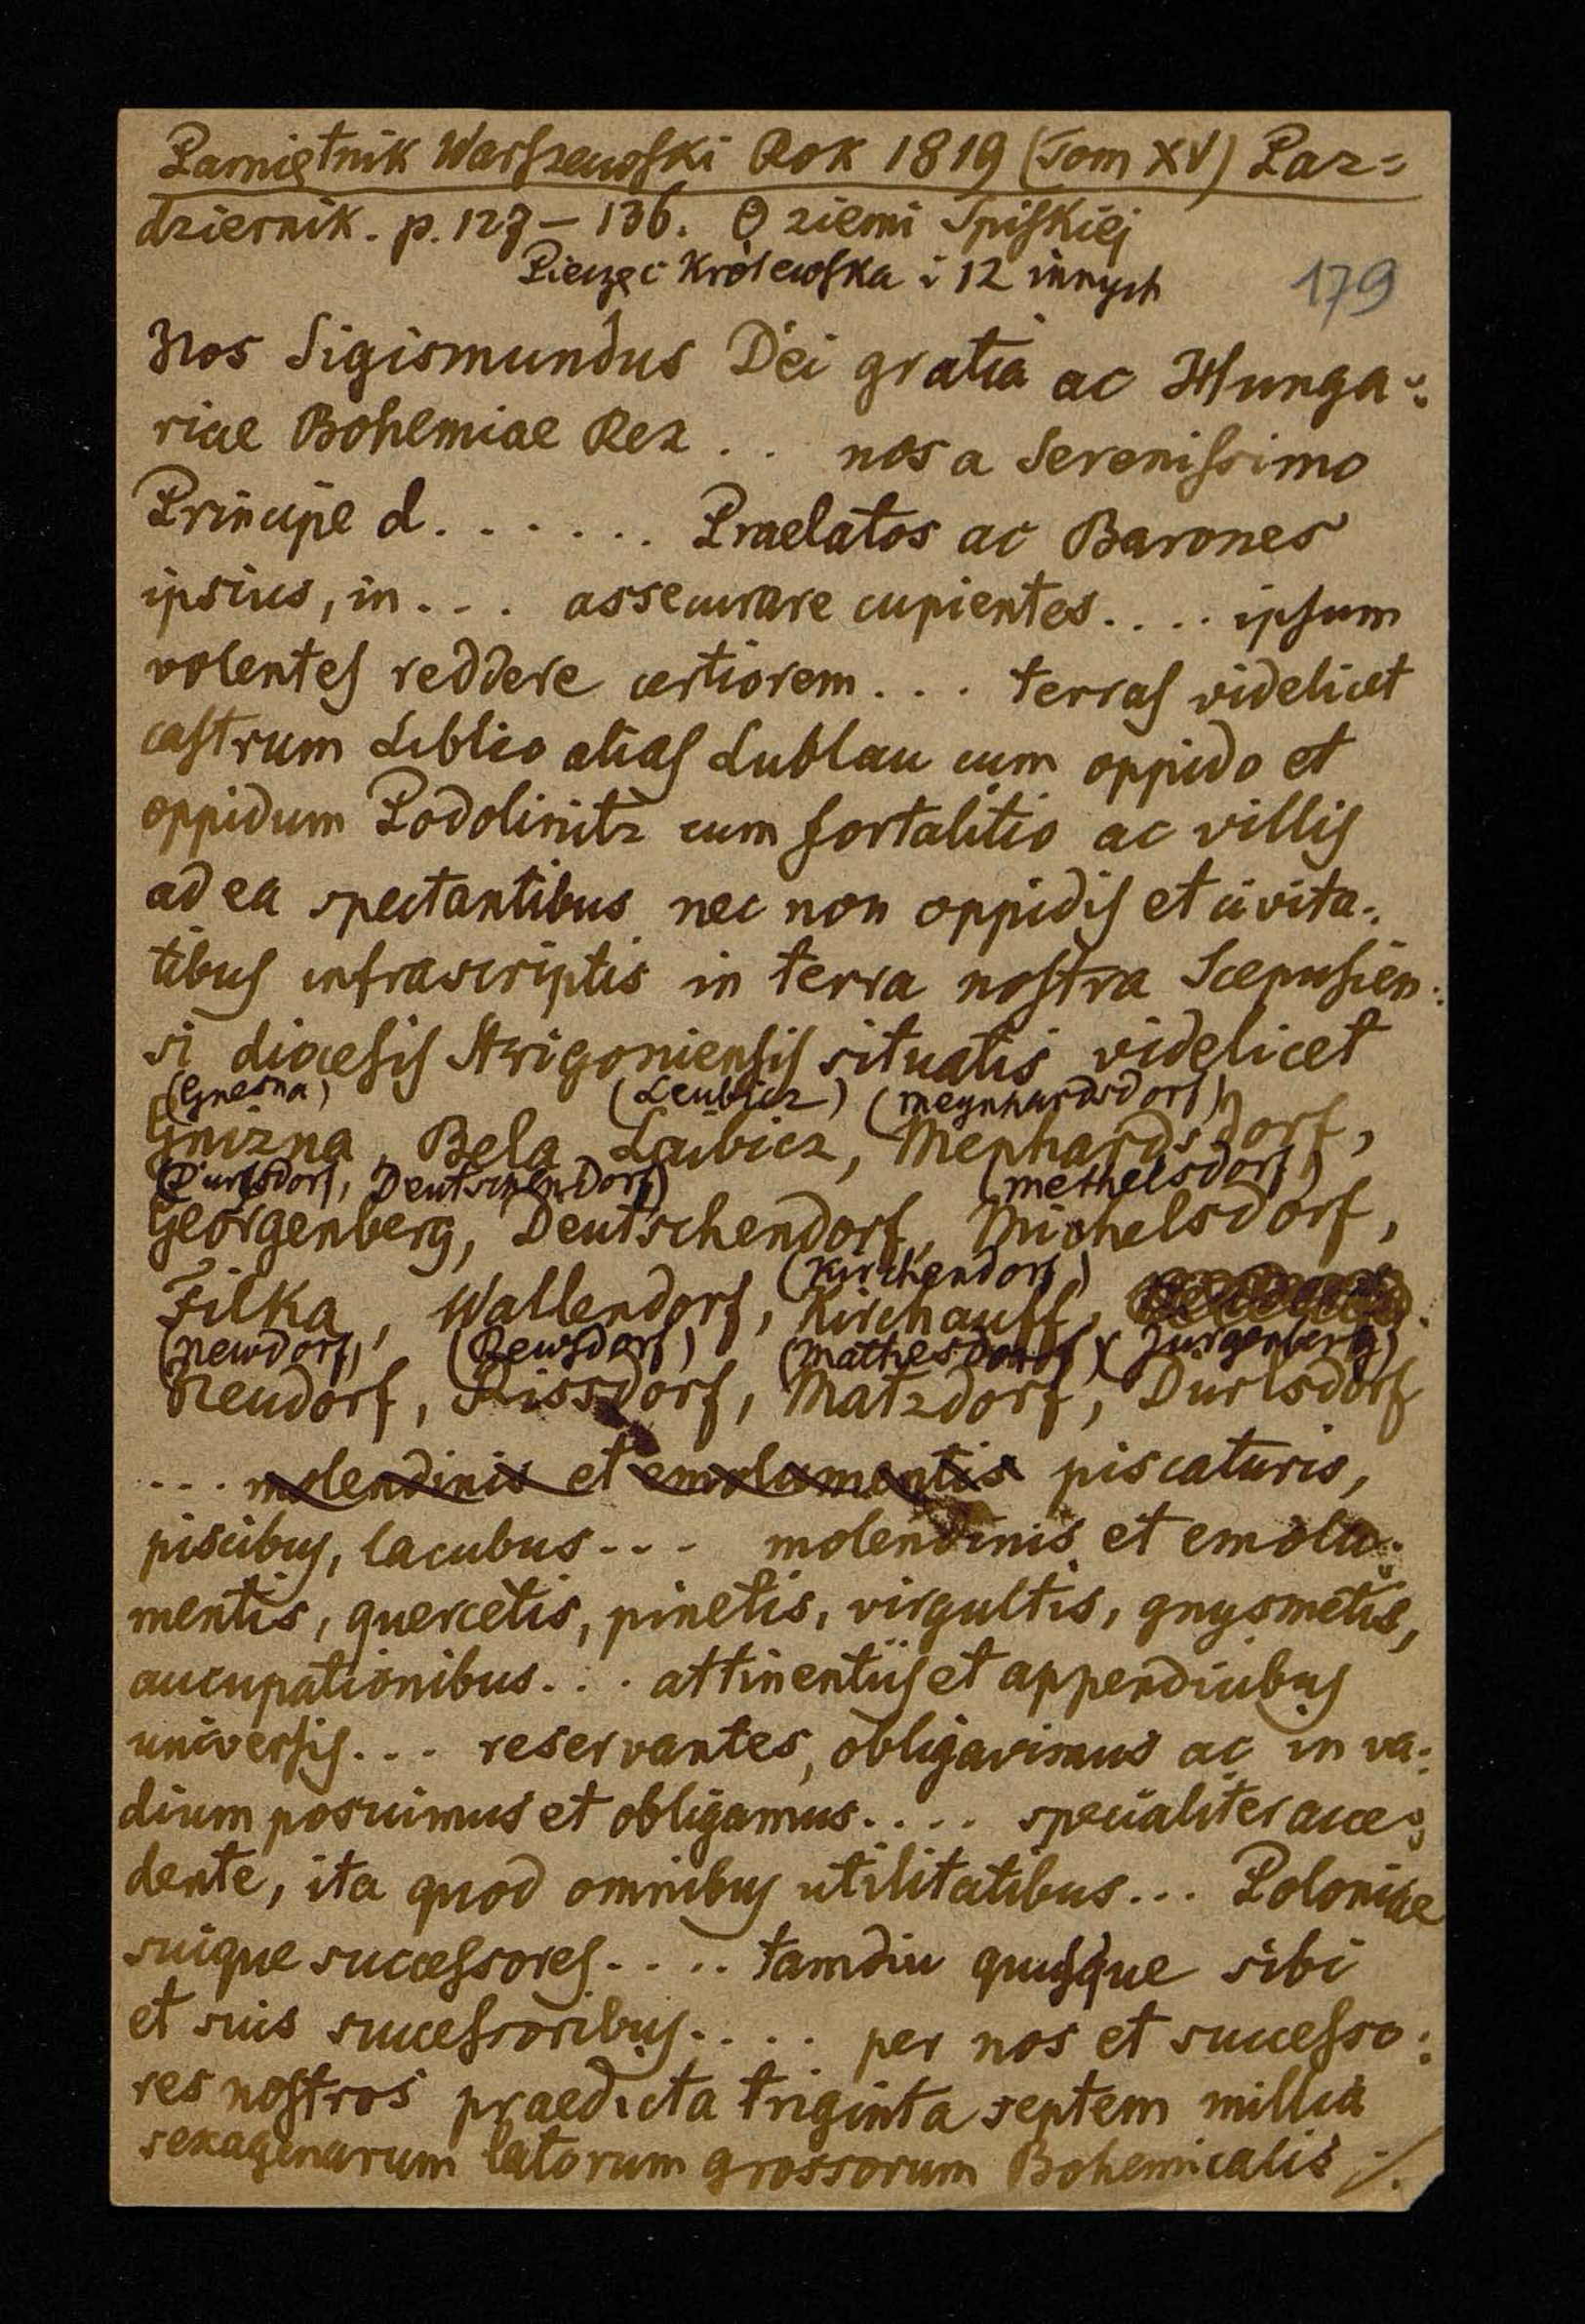 Pamiętnik Warszewski Rok 1819 (Tom XV) Paz=
dziernik. p. 127 – 136. O ziemi Spiskiej
Pieczęć Królewska i 12 innych
179
Nos Sigismundus Dei gratia ac Hunga=
riae Bohemiae Rex . . nos a Serenissimo
Principe d. . . . . . . Praelatos ac Barones
ipsius, in . . . assecurare cupientes. . . . . ipsum
volentes reddere certiorem . . . . terras videlicet
castrum Liblio alias Lublau cum oppido et
oppidum Podolinitz cum fortalitio ac villis
ad ea spectantibus nec non oppidis et civita=
tibus infrascriptis in terra nostra Scepusien=
si diocesis Strigoniensis situatis videlicet
(Gnesna) (Leubicz) (Meynhardsdorf)
Gnizna, Bela Laibicz, Menhardsdorf,
(Durlsdorf, Deutschendorf) (Methelsdorf)
Georgenberg, Deutschendorf, Michelsdorf,
(Kirchendorf)
Filka, Wallendorf, Kirchauff,
(Newdorf) (Rewsdorf) (Mathesdorf) (Jurgenberg)
Neudorf, Rissdorf, Matzdorf, Durlsdorf
. . . molendinis et emolumentis piscaturis,
piscibus, lacubus - - - molendinis et emolu=
mentis, quercetis, pinetis, virgultis, gnysmetis,
aucupationibus. . . . attinentiis et appendicibus
universis. . . . reservantes, obligavimus ac in va=
dium posuimus et obligamus. . . . . specialiter acce=
dente, ita quod omnibus utilitatibus . . . Poloniae
suique successores. . . . . tamdiu quusque sibi
et suis successoribus. . . . . per nos et successo=
res nostros praedicta triginta septem millia
sexagenarum latorum grossorum Bohemicalis ./.